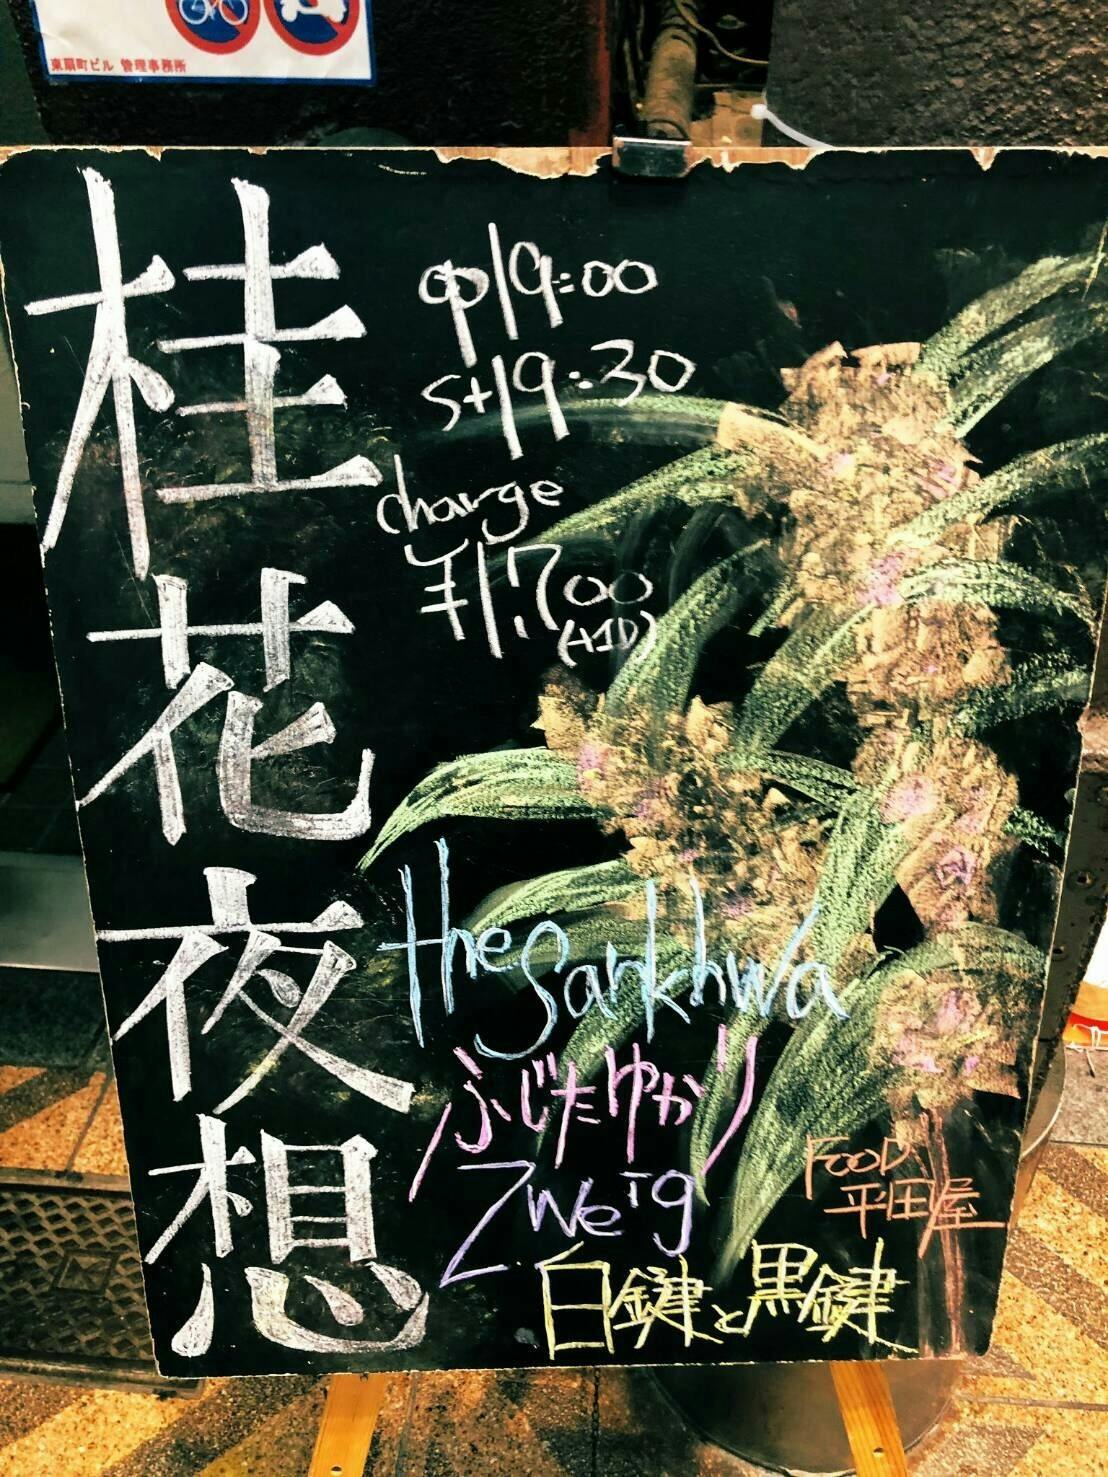 東扇町ビル 管理事務所
桂花夜想
op19:00
st19:30
charge
¥1,700
(+1D)
the Sankhwa
ふじたゆかり
Zweig
白鍵と黒鍵
FOOD
平田屋